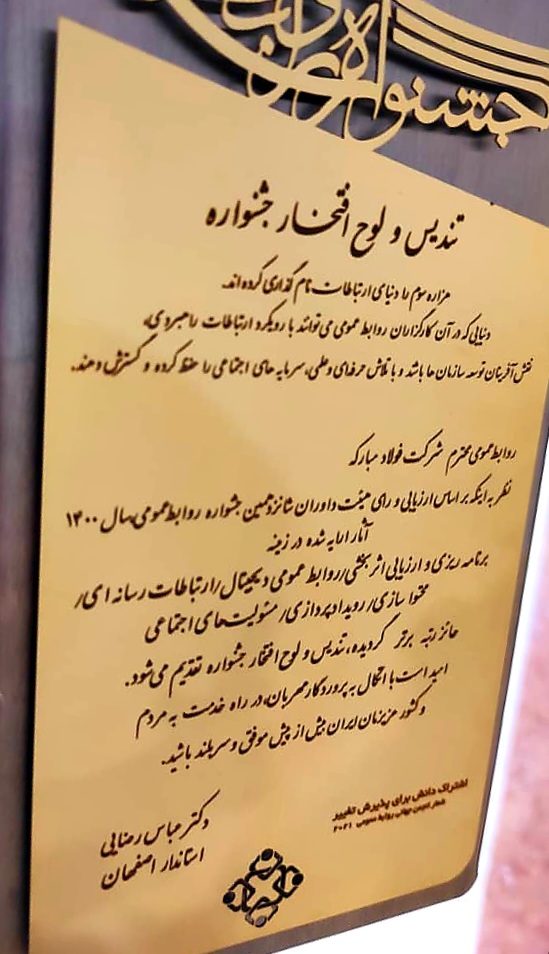 جشنواره
تندیس و لوح افتخار جشنواره
هزاره سوم را دنیای ارتباطات نام گذاری کرده‌اند.
دنیایی که در آن کارگزاران روابط عمومی می‌توانند با رویکرد ارتباطات راهبردی،
نقش آفرینان توسعه سازمان‌ها باشد و با تلاش حرفه‌ای و علمی، سرمایه های اجتماعی را حفظ کرده و گسترش دهند.
روابط عمومی محترم شرکت فولاد مبارکه
نظر به اینکه بر اساس ارزیابی و رای هیئت داوران شانزدهمین جشنواره روابط عمومی سال ۱۴۰۰
آثار ارایه شده در زمینه
برنامه ریزی و ارزیابی اثر بخشی/ روابط عمومی دیجیتال/ ارتباطات رسانه ای/
محتوا سازی/ رویداد پردازی/ مسئولیت‌های اجتماعی
حائز رتبه برتر گردیده، تندیس و لوح افتخار جشنواره تقدیم می‌شود.
امید است با اتکال به پروردگار مهربان، در راه خدمت به مردم
و کشور عزیزمان ایران بیش از پیش موفق و سربلند باشید.
اشتراک دانش برای پذیرش تغییر
شعار انجمن جهانی روابط عمومی ۲۰۲۱
دکتر عباس رضایی
استاندار اصفهان